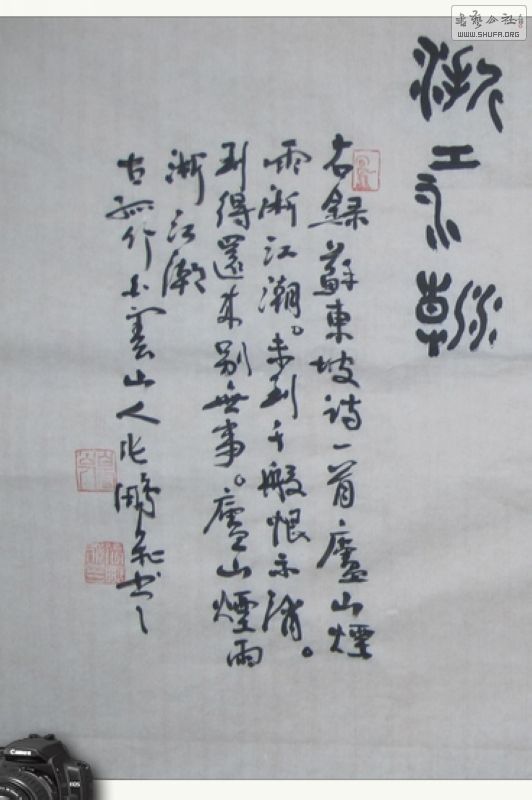 浙江潮
右録蘇東坡詩一首廬山煙
雨浙江潮。未到千般恨不消。
到得還來別無事。廬山煙雨
浙江潮
古 作 雲山人 鵬 書
書藝公社
WWW.SHUFA.ORG
Canon
EOS